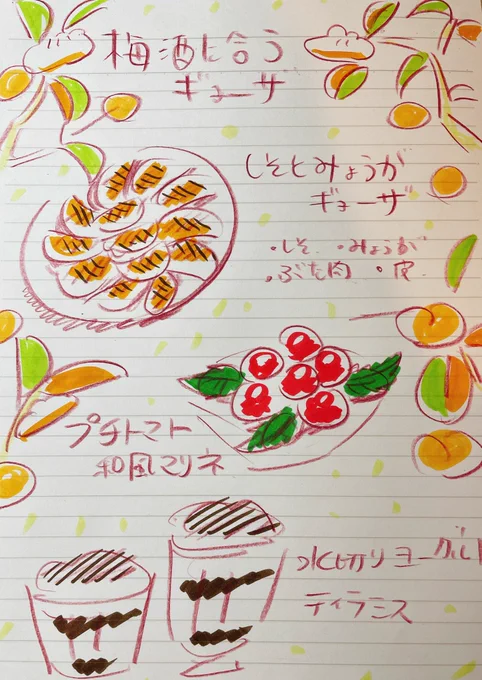 梅酒に合う
ギョーザ
しそとみょうが
ギョーザ
・しそ ・みょうが
・ぶた肉 ・皮
プチトマト
和風マリネ
水切りヨーグルト
ティラミス